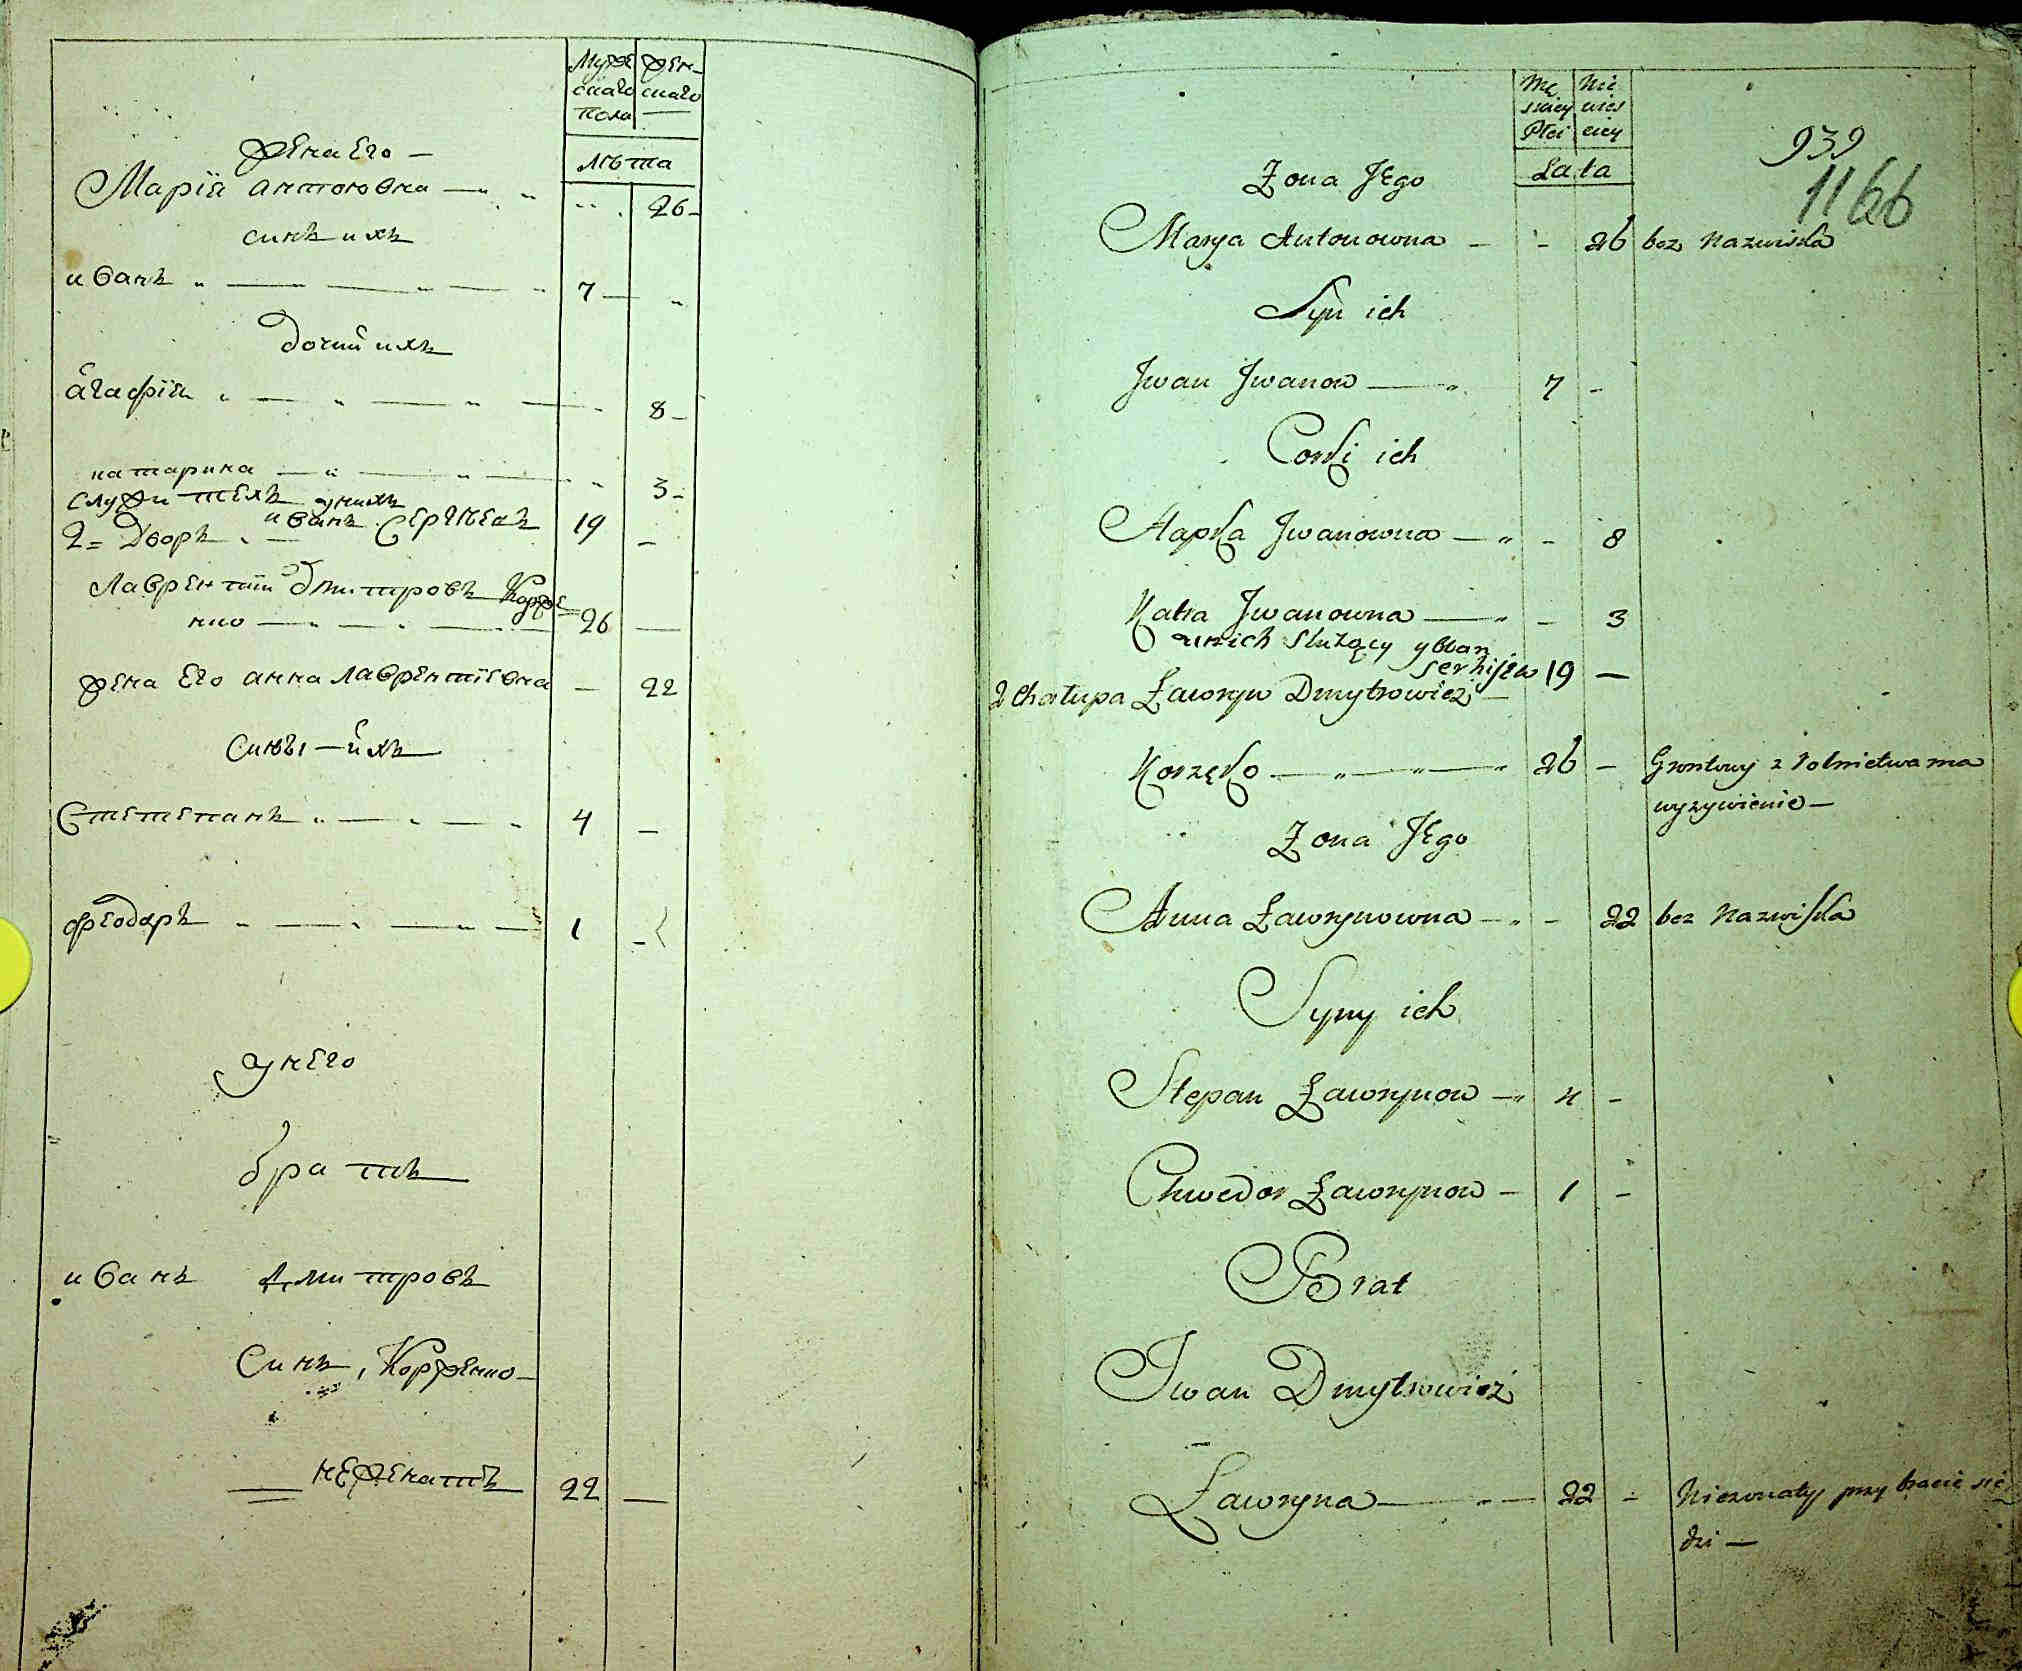 Муже Жен-
скаго скаго
Пола
Лѣта
Жена Его —
Марія антоновна — " " .. . 26 -
синъ ихъ
иванъ " — " — — " — " 7 — "
дочки ихъ
агафія " — " — " — - 8 -
катарина — " — " — " 3 -
служитель унихъ
2 = Дворъ . — иванъ Сергѣевъ 19 —
Лаврентій дмитровъ Корже=
нко — " — . — 26 —
жена Его анна Лаврентіевна — 22
Сины — ихъ
Стетепанъ " — . — — " 4 —
феодоръ " — . — " — 1 -
унего
братъ
иванъ дмитровъ
Синъ, Корженко —
— нЕженатъ 22 —
Mę Nie
skiey wies
Płci ciey
Lata
939
1166
Żona Jego
Marya Antonowna — - - 26 bez Nazwiska
Syn ich
Jwan Jwanow — " 7 -
Corki ich
Hapka Jwanowna — " - 8
Katra Jwanowna — " - 3
unich służący ywan
serhijew 19 —
2 Chałupa Ławryn Dmytrowicz —
Korzęko — " — " — " 26 - Grontowy z rolnictwa ma
wyzywienie —
Żona JEgo
Anna Ławrynowna — " - 22 bez Nazwiska
Syny ich
Stepan Ławrynow — " 4 -
Chwedor Ławrynow — 1 -
Brat
Jwan Dmytrowicz
Ławryna — " — 22 - Niezonaty przy bracie sie
dzi —